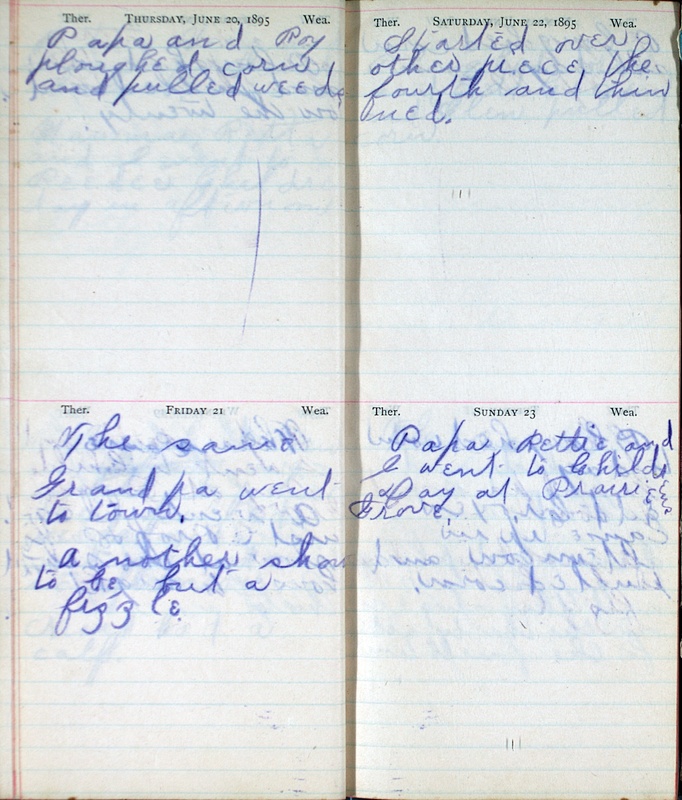 Ther. THURSDAY, JUNE 20, 1895 Wea.
Papa and Roy
ploughed corn
and pulled weeds
Ther. FRIDAY 21 Wea.
The same
Grandpa went
to town.
a nother show
to be but a
fizzle.
Ther. SATURDAY, JUNE 22, 1895 Wea.
Started over
other piece the
fourth and thin
ned.
Ther. SUNDAY 23 Wea.
Papa Pettie and
I went to Childrens
Day at Prairie
Grove.